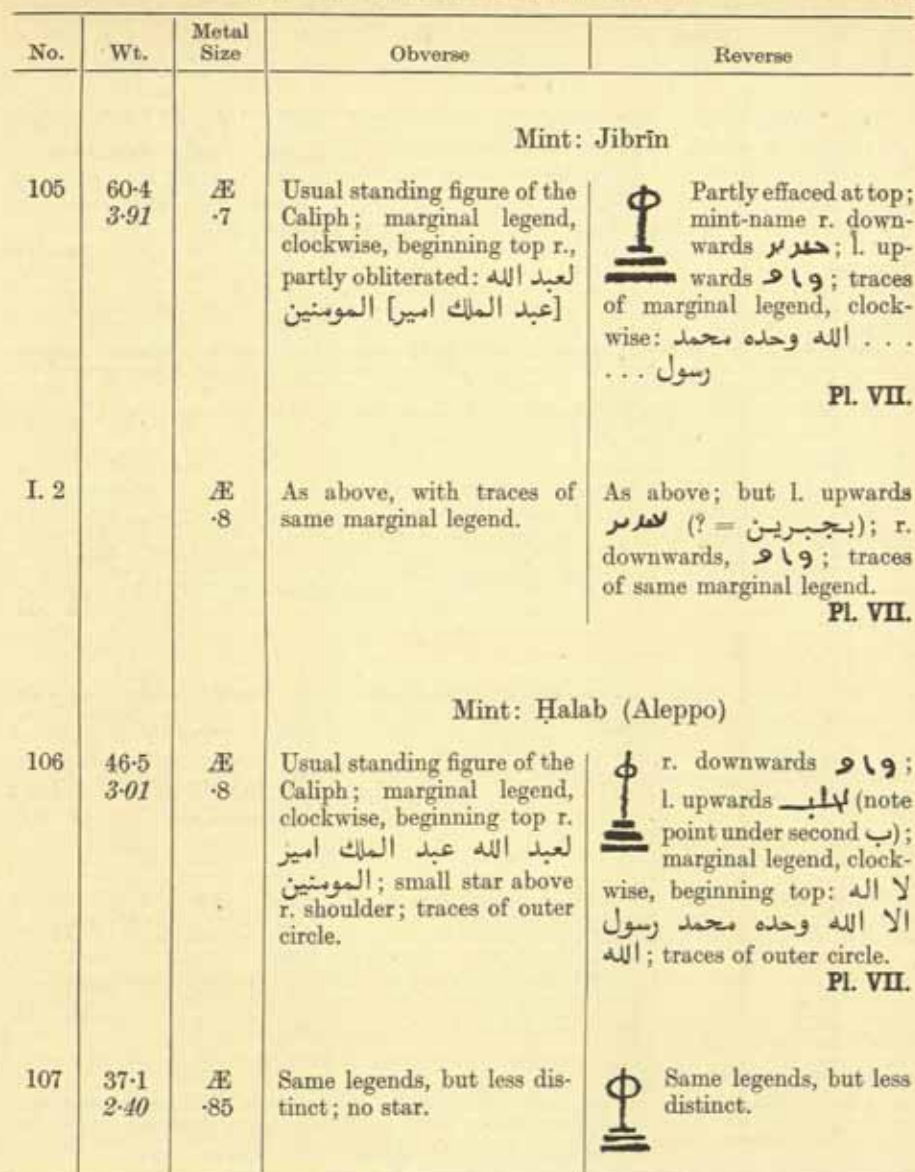 No. Wt. Metal Size Obverse Reverse
Mint: Jibrīn
105 60·4 3·91 Æ ·7
Usual standing figure of the
Caliph; marginal legend,
clockwise, beginning top r.,
partly obliterated: لعبد الله
[عبد الملك امير] المومنين
Partly effaced at top;
mint-name r. down-
wards ; l. up-
wards واف ; traces
of marginal legend, clock-
wise: . . . الله وحده محمد
رسول . . .
Pl. VII.
I. 2 Æ ·8
As above, with traces of
same marginal legend.
As above; but l. upwards
(? = بجبرين); r.
downwards, واف ; traces
of same marginal legend.
Pl. VII.
Mint: Ḥalab (Aleppo)
106 46·5 3·01 Æ ·8
Usual standing figure of the
Caliph; marginal legend,
clockwise, beginning top r.
لعبد الله عبد الملك امير
المومنين; small star above
r. shoulder; traces of outer
circle.
r. downwards واف ;
l. upwards (note
point under second ب);
marginal legend, clock-
wise, beginning top: لا اله
الا الله وحده محمد رسول
الله; traces of outer circle.
Pl. VII.
107 37·1 2·40 Æ ·85
Same legends, but less dis-
tinct; no star.
Same legends, but less
distinct.